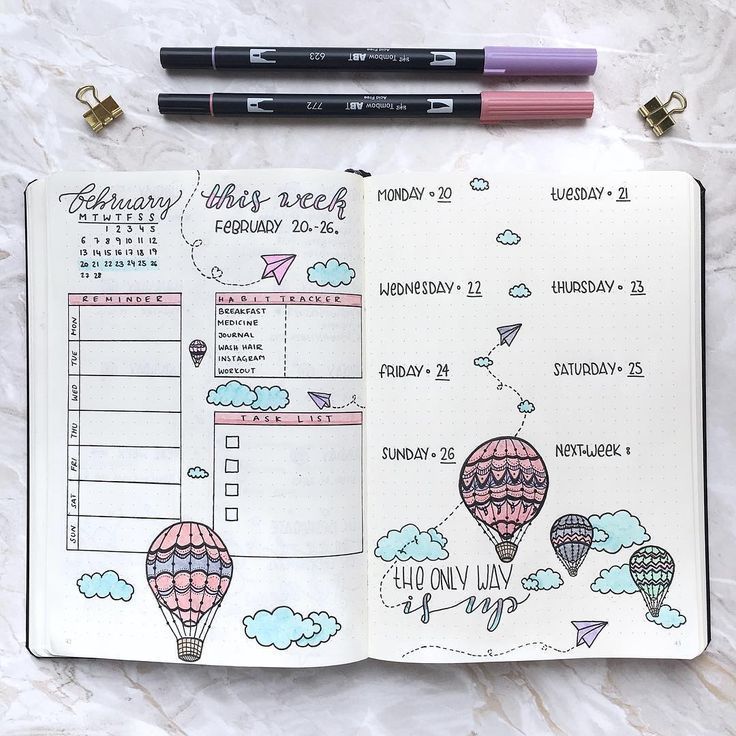 623 Tombow ABT
Acid Free
772 Tombow ABT
Acid Free
february
M T W T F S S
1 2 3 4 5
6 7 8 9 10 11 12
13 14 15 16 17 18 19
20 21 22 23 24 25 26
27 28
this week
FEBRUARY 20.-26.
REMINDER
MON
TUE
WED
THU
FRI
SAT
SUN
HABIT TRACKER
BREAKFAST
MEDICINE
JOURNAL
WASH HAIR
INSTAGRAM
WORKOUT
TASK LIST
42
MONDAY • 20
TUESDAY • 21
WEDNESDAY • 22
THURSDAY • 23
FRIDAY • 24
SATURDAY • 25
SUNDAY • 26
NEXT•WEEK 8
THE ONLY WAY
is up
43